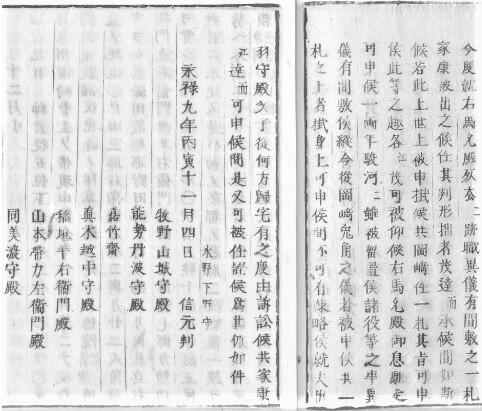 今度就右馬允殿死去ニ跡職異儀有間敷之一札
家康被出之候任其判形拙者茂達而承候間如斯
候若此上世上被申扱候共岡崎任一札其旨可申
候此等之趣各江茂可被仰候右馬允殿御息
可申候一両年駿河ニ雖被留置候諸役等之申異
儀有間敷候縦令従岡崎兎角之儀被申候共一
札之上者拙身上可申候間不可有疎略候就夫
羽守殿又子従何方帰宅有之度由訴訟候共家康
江達而可申候間是又可被任置候為其仍如件
水野下野守
永禄九年丙寅十一月四日 信元判
牧野山城守殿
能勢丹波守殿
嘉竹齋
真木越中守殿
稲垣平右衞門殿
山本帶刀左衞門殿
同美濃守殿